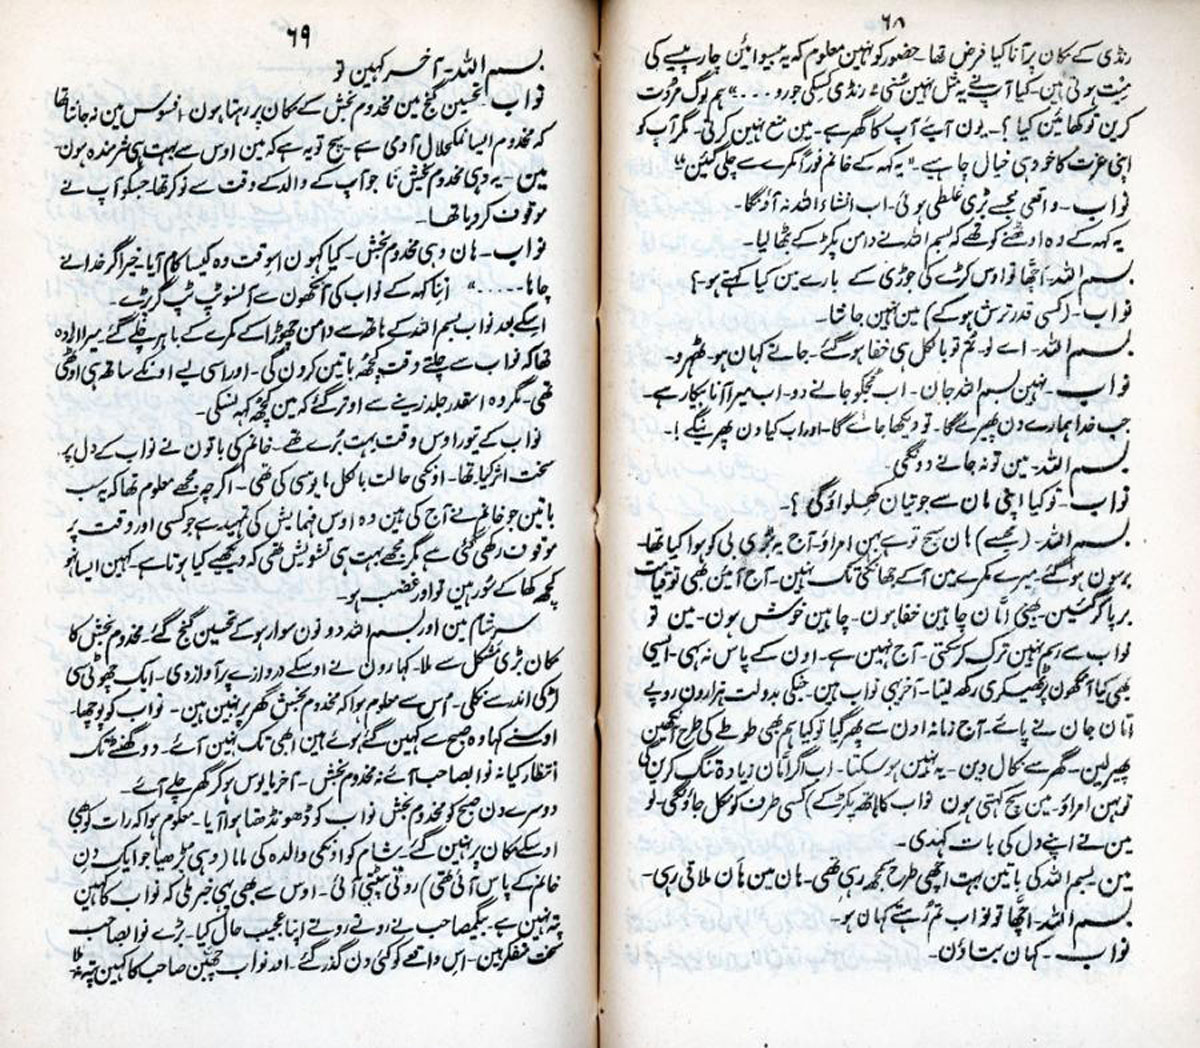 ۶۸
رنڈی کے مکان پر آنا کیا فرض تھا۔ حضور کو نہین معلوم کہ یہ بیسوائین چار پیسے کی
میت ہوتی ہین۔ کیا آپنے یہ مثل نہین سنی، رنڈی کسکی جورو . . . . " ہم لوگ مروت
کرین تو کھائین کیا ؟۔ یون آیئے آپ کا گھر ہے۔ مین منع نہین کرتی۔ مگر آپ کو
اپنی عزت کا خود ہی خیال چاہیے۔" یہ کہہ کے خانم فوراً کمرے سے چلی گئین"
نواب۔ واقعی مجھسے بڑی غلطی ہوئی۔ اب انشاءاللہ نہ آؤنگا۔
یہ کہہ کے وہ اوٹھنے کو تھے کہ بسم اللہ نے دامن پکڑ کے بٹھا لیا۔
بسم اللہ۔ اچھا تو اوس کڑے کی جوڑی کے بارے مین کیا کہتے ہو؟
نواب۔ (کسی قدر ترش ہوکے) مین نہین جانتا۔
بسم اللہ۔ اے لو۔ تم تو بالکل ہی خفا ہو گئے۔ جاتے کہان ہو۔ ٹھہرو۔
نواب۔ نہین بسم اللہ جان۔ اب مجکو جانے دو۔ اب میرا آنا بیکار ہے۔
جب خدا ہمارے دن پھیرے گا۔ تو دیکھا جائے گا۔ اور اب کیا دن پھرینگے !۔
بسم اللہ۔ مین تو نہ جانے دونگی۔
نواب۔ تو کیا اپنی مان سے جوتیان کھلواؤگی ؟۔
بسم اللہ۔ (مجھسے) ہان سچ تو ہے بہن امراؤ۔ آج یہ بڑی بی کو ہوا کیا تھا۔
برسون ہو گئے۔ میرے کمرے مین آکے جھانکتی تک نہین۔ آج آئین بھی تو قیامت
برپا کر گئین۔ بھئی امان چاہین خفا ہون۔ چاہین خوش ہون۔ مین تو
نواب سے رسم نہین ترک کر سکتی۔ آج نہین ہے۔ اون کے پاس نہ سہی۔ ایسی
بھی کیا آنکھون پر ٹھیکری رکھ لینا۔ آخر یہی نواب ہین۔ جنکی بدولت ہزارون روپے
امان جان نے پائے۔ آج زمانہ اون سے پھر گیا تو کیا ہم بھی طوطے کی طرح آنکھین
پھیر لین۔ گھر سے نکال دین۔ یہ نہین ہو سکتا۔ اب اگر امان زیادہ تنگ کرین گی
تو بہن امراؤ۔ مین سچ کہتی ہون نواب کا ہاتھ پکڑ کے) کسی طرف کو نکل جاؤنگی۔ لو
مین نے اپنے دل کی بات کہدی۔
مین بسم اللہ کی باتین بہت اچھی طرح سمجھ رہی تھی۔ ہان مین ہان ملاتی رہی۔
بسم اللہ۔ اچھا تو نواب تم رہتے کہان ہو۔
نواب۔ کہان بتاؤن۔
۶۹
بسم اللہ۔ آخر کہین تو
نواب تحسین گنج مین مخدوم بخش کے مکان پر رہتا ہون۔ افسوس مین نہ جانتا تھا
کہ مخدوم ایسا نمکحلال آدمی ہے۔ سچ تو یہ ہے کہ مین اوس سے بہت ہی شرمندہ ہون۔
مین۔ یہ وہی مخدوم بخش نا جو آپ کے والد کے وقت سے نوکر تھا، جسکو آپ نے
موقوف کر دیا تھا۔
نواب۔ ہان وہی مخدوم بخش۔ کیا کہون اسوقت وہ کیسا کام آیا۔ خیر اگر خدا نے
چاہا......" اتنا کہہ کے نواب کی آنکھون سے آنسو ٹپ ٹپ گر پڑے۔
اسکے بعد نواب بسم اللہ کے ہاتھ سے دامن چھوڑا کے کمرے کے باہر چلے گئے۔ میرا ارادہ
تھا کہ نواب سے چلتے وقت کچھ باتین کرون گی۔ اور اسی لیے اونکے ساتھ ہی اوٹھی
تھی۔ مگر وہ اسقدر جلد زینے سے اوتر گئے کہ مین کچھ کہہ نسکی۔
نواب کے تیور اوس وقت بہت برے تھے۔ خانم کی باتون نے نواب کے دل پر
سخت اثر کیا تھا۔ اونکی حالت بالکل مایوسی کی تھی۔ اگرچہ مجھے معلوم تھا کہ یہ سب
باتین جو خانم نے آج کی ہین وہ اوس فہمایش کی تمہید ہے جو کسی اور وقت پر
موقوف رکھی گئی ہے مگر مجھے بہت ہی تشویش تھی کہ دیکھیے کیا ہوتا ہے۔ کہین ایسا نہو
کچھ کھا کے سو رہین تو اور غضب ہو۔
سر شام مین اور بسم اللہ دونون سوار ہو کے تحسین گنج گئے۔ مخدوم بخش کا
مکان بڑی مشکل سے ملا۔ کہارون نے اوسکے دروازے پر آواز دی۔ ایک چھوٹی سی
لڑکی اندر سے نکلی۔ اس سے معلوم ہوا کہ مخدوم بخش گھر پر نہین ہین۔ نواب کو پوچھا۔
اوسنے کہا وہ صبح سے کہین گئے ہوئے ہین ابھی تک نہین آئے۔ دو گھنٹے تک
انتظار کیا نہ نوابصاحب آئے نہ مخدوم بخش۔ آخر مایوس ہو کر گھر چلے آئے۔
دوسرے دن صبح کو مخدوم بخش نواب کو ڈھونڈھتا ہوا آیا۔ معلوم ہوا کہ رات کو بھی
اوسکے مکان پر نہین گئے۔ شام کو اونکی والدہ کی ماما (وہی بڑھیا جو ایک دن
خانم کے پاس آئی تھی) روتی پیٹتی آئی۔ اوس سے بھی یہی خبر ملی کہ نواب کا کہین
پتہ نہین ہے۔ بیگمصاحب نے روتے روتے اپنا عجیب حال کیا۔ بڑے نوابصاحب
سخت متفکر ہین۔ اس واقعے کو کئی دن گذر گئے۔ اور نواب چھبن صاحب کا کہین پتہ نہ ملا